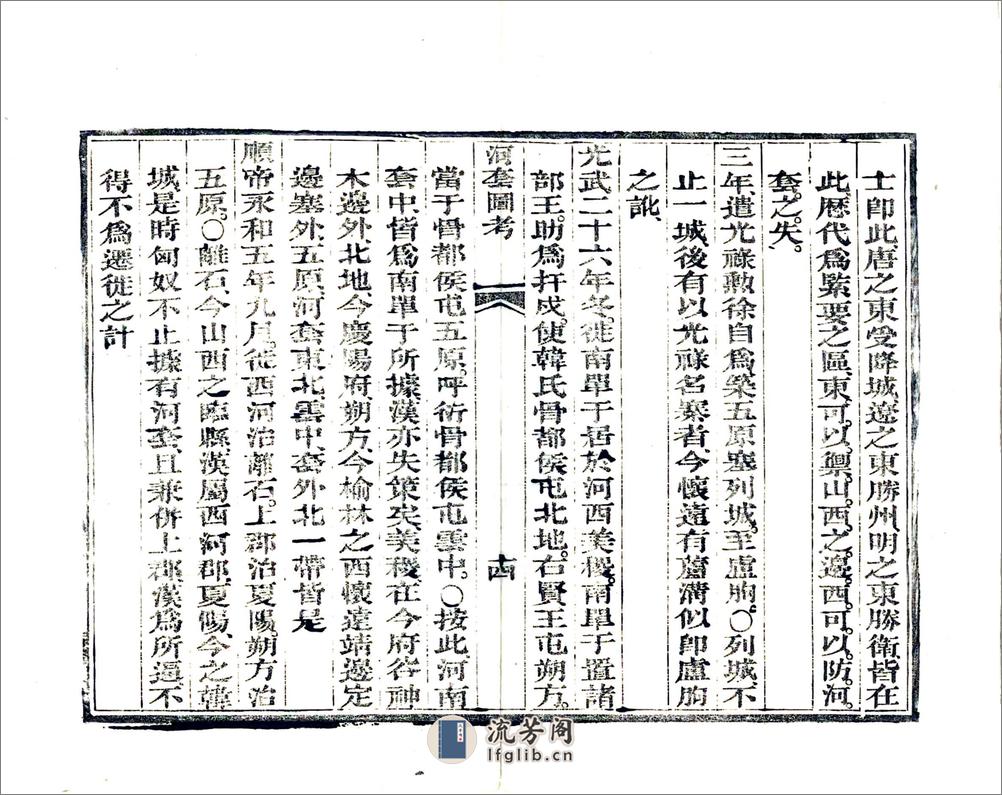 士卽此唐之東受降城遼之東勝州明之東勝衛皆在
此歷代爲緊要之區東可以禦山西之邊西可以防河
套之失。
三年遣光祿勳徐自爲築五原塞列城至盧朐。〇列城不
止一城後有以光祿名寨者今懷遠有蘆溝似卽盧朐
之訛
光武二十六年冬徙南單于居於河西美稷。南單于置諸
部王助爲扞戍使韓氏骨都侯屯北地。右賢王屯朔方。
河套圖考
十四
當于骨都侯屯五原呼衍骨都侯屯雲中。〇按此河南
套中皆爲南單于所據漢亦失策矣美稷在今府谷神
木邊外北地今慶陽府朔方今榆林之西懷遠靖邊定
邊塞外五原河套東北雲中套外北一帶皆是
順帝永和五年九月徙西河治離石。上郡治夏陽。朔方治
五原。〇離石今山西之臨縣漢屬西河郡夏陽今之韓
城是時匈奴不止據有河套且兼併上郡漢爲所逼不
得不爲遷徙之計
流芳阁
lfglib.cn